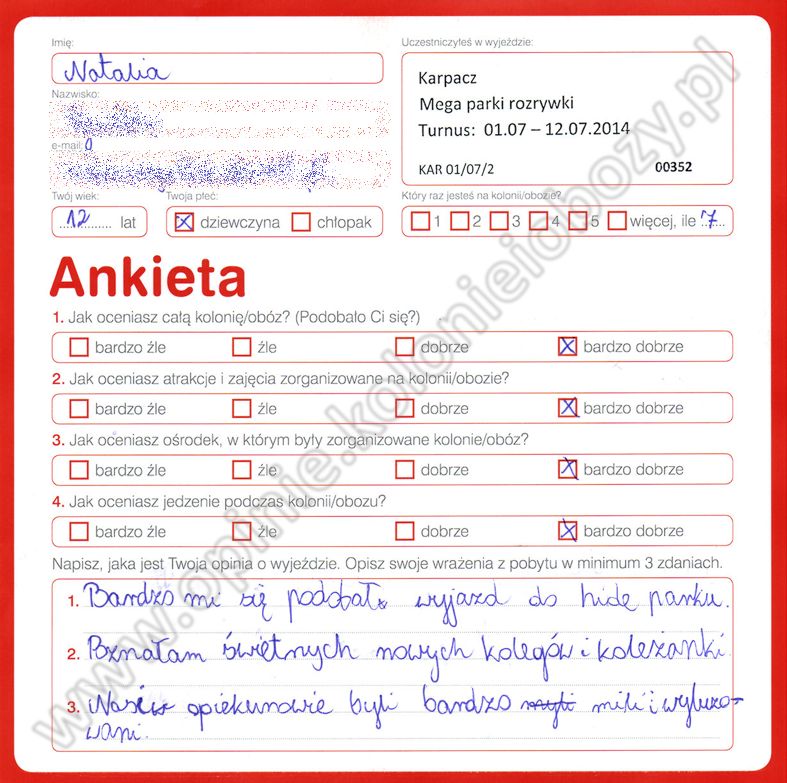 Imię:
Natalia
Nazwisko:
e-mail:
Twój wiek:
12 lat
Twoja płeć:
dziewczyna chłopak
Uczestniczyłeś w wyjeździe:
Karpacz
Mega parki rozrywki
Turnus: 01.07 – 12.07.2014
KAR 01/07/2 00352
Który raz jesteś na kolonii/obozie?
1 2 3 4 5 więcej, ile 7
Ankieta
1. Jak oceniasz całą kolonię/obóz? (Podobało Ci się?)
bardzo źle źle dobrze bardzo dobrze
2. Jak oceniasz atrakcje i zajęcia zorganizowane na kolonii/obozie?
bardzo źle źle dobrze bardzo dobrze
3. Jak oceniasz ośrodek, w którym były zorganizowane kolonie/obóz?
bardzo źle źle dobrze bardzo dobrze
4. Jak oceniasz jedzenie podczas kolonii/obozu?
bardzo źle źle dobrze bardzo dobrze
Napisz, jaka jest Twoja opinia o wyjeździe. Opisz swoje wrażenia z pobytu w minimum 3 zdaniach.
1. Bardzo mi się podobał wyjazd do hide parku.
2. Poznałam świetnych nowych kolegów i koleżanki.
3. opiekunowie byli bardzo mili i wyluzo-
wani.
www.opinie.kolonieiobozy.pl